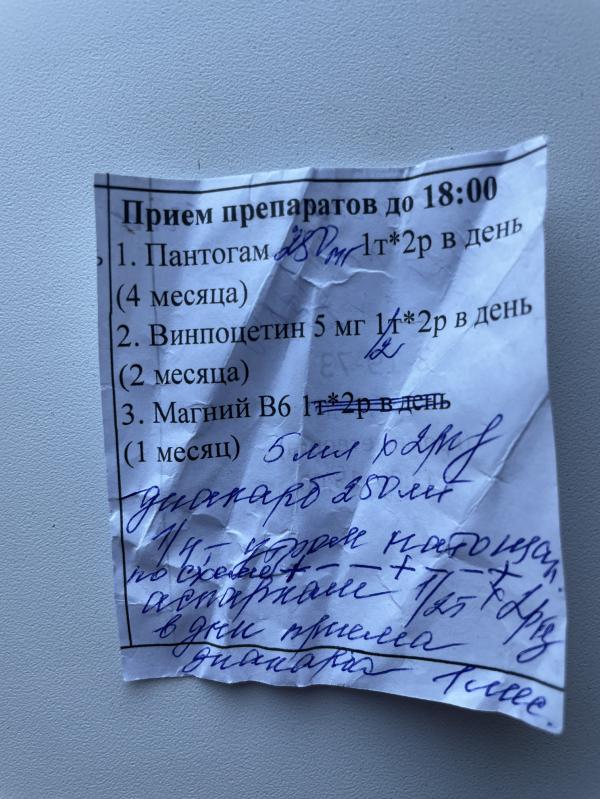 Прием препаратов до 18:00
1. Пантогам 250 мг 1т*2р в день
(4 месяца)
2. Винпоцетин 5 мг 1/2 т*2р в день
(2 месяца)
3. Магний В6 1т*2р в день
(1 месяц) 5 мл х 2р/д
диакарб 250 мг
1/4 - утром натощак
по схеме + - - + - - +
аспаркам 1/2т х 2р/д
в дни приема
диакарба 1 мес.